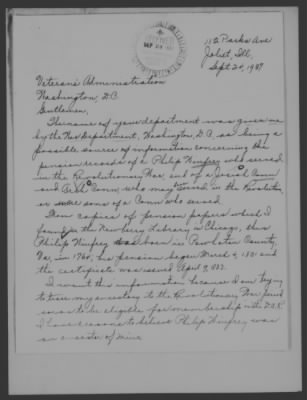 112 Parks Ave
Joliet, Ill.
Sept 20, 1937
Veterans Administration
Washington, D.C.
Gentlemen,
The name of your department was given me
by the War Department, Washington, D.C. as being a
possible source of information concerning the
pension records of a Philip Winfrey who served
in the Revolutionary War, and of a Josiah Conn
and Conn, who may served in the Revolution
or were sons of a Conn who served.
From copies of pension papers which I
found in the Newberry Library in Chicago, this
Philip Winfrey was born in Powhatan County,
Va, in 1760, his pension began March 4, 1831 and
the certificate was issued April 9, 1833.
I want this information because I am trying
to trace my ancestry to the Revolutionary War period
so as to be eligible for membership in the D.A.R.
I have reasons to believe Philip Winfrey was
an ancestor of mine.